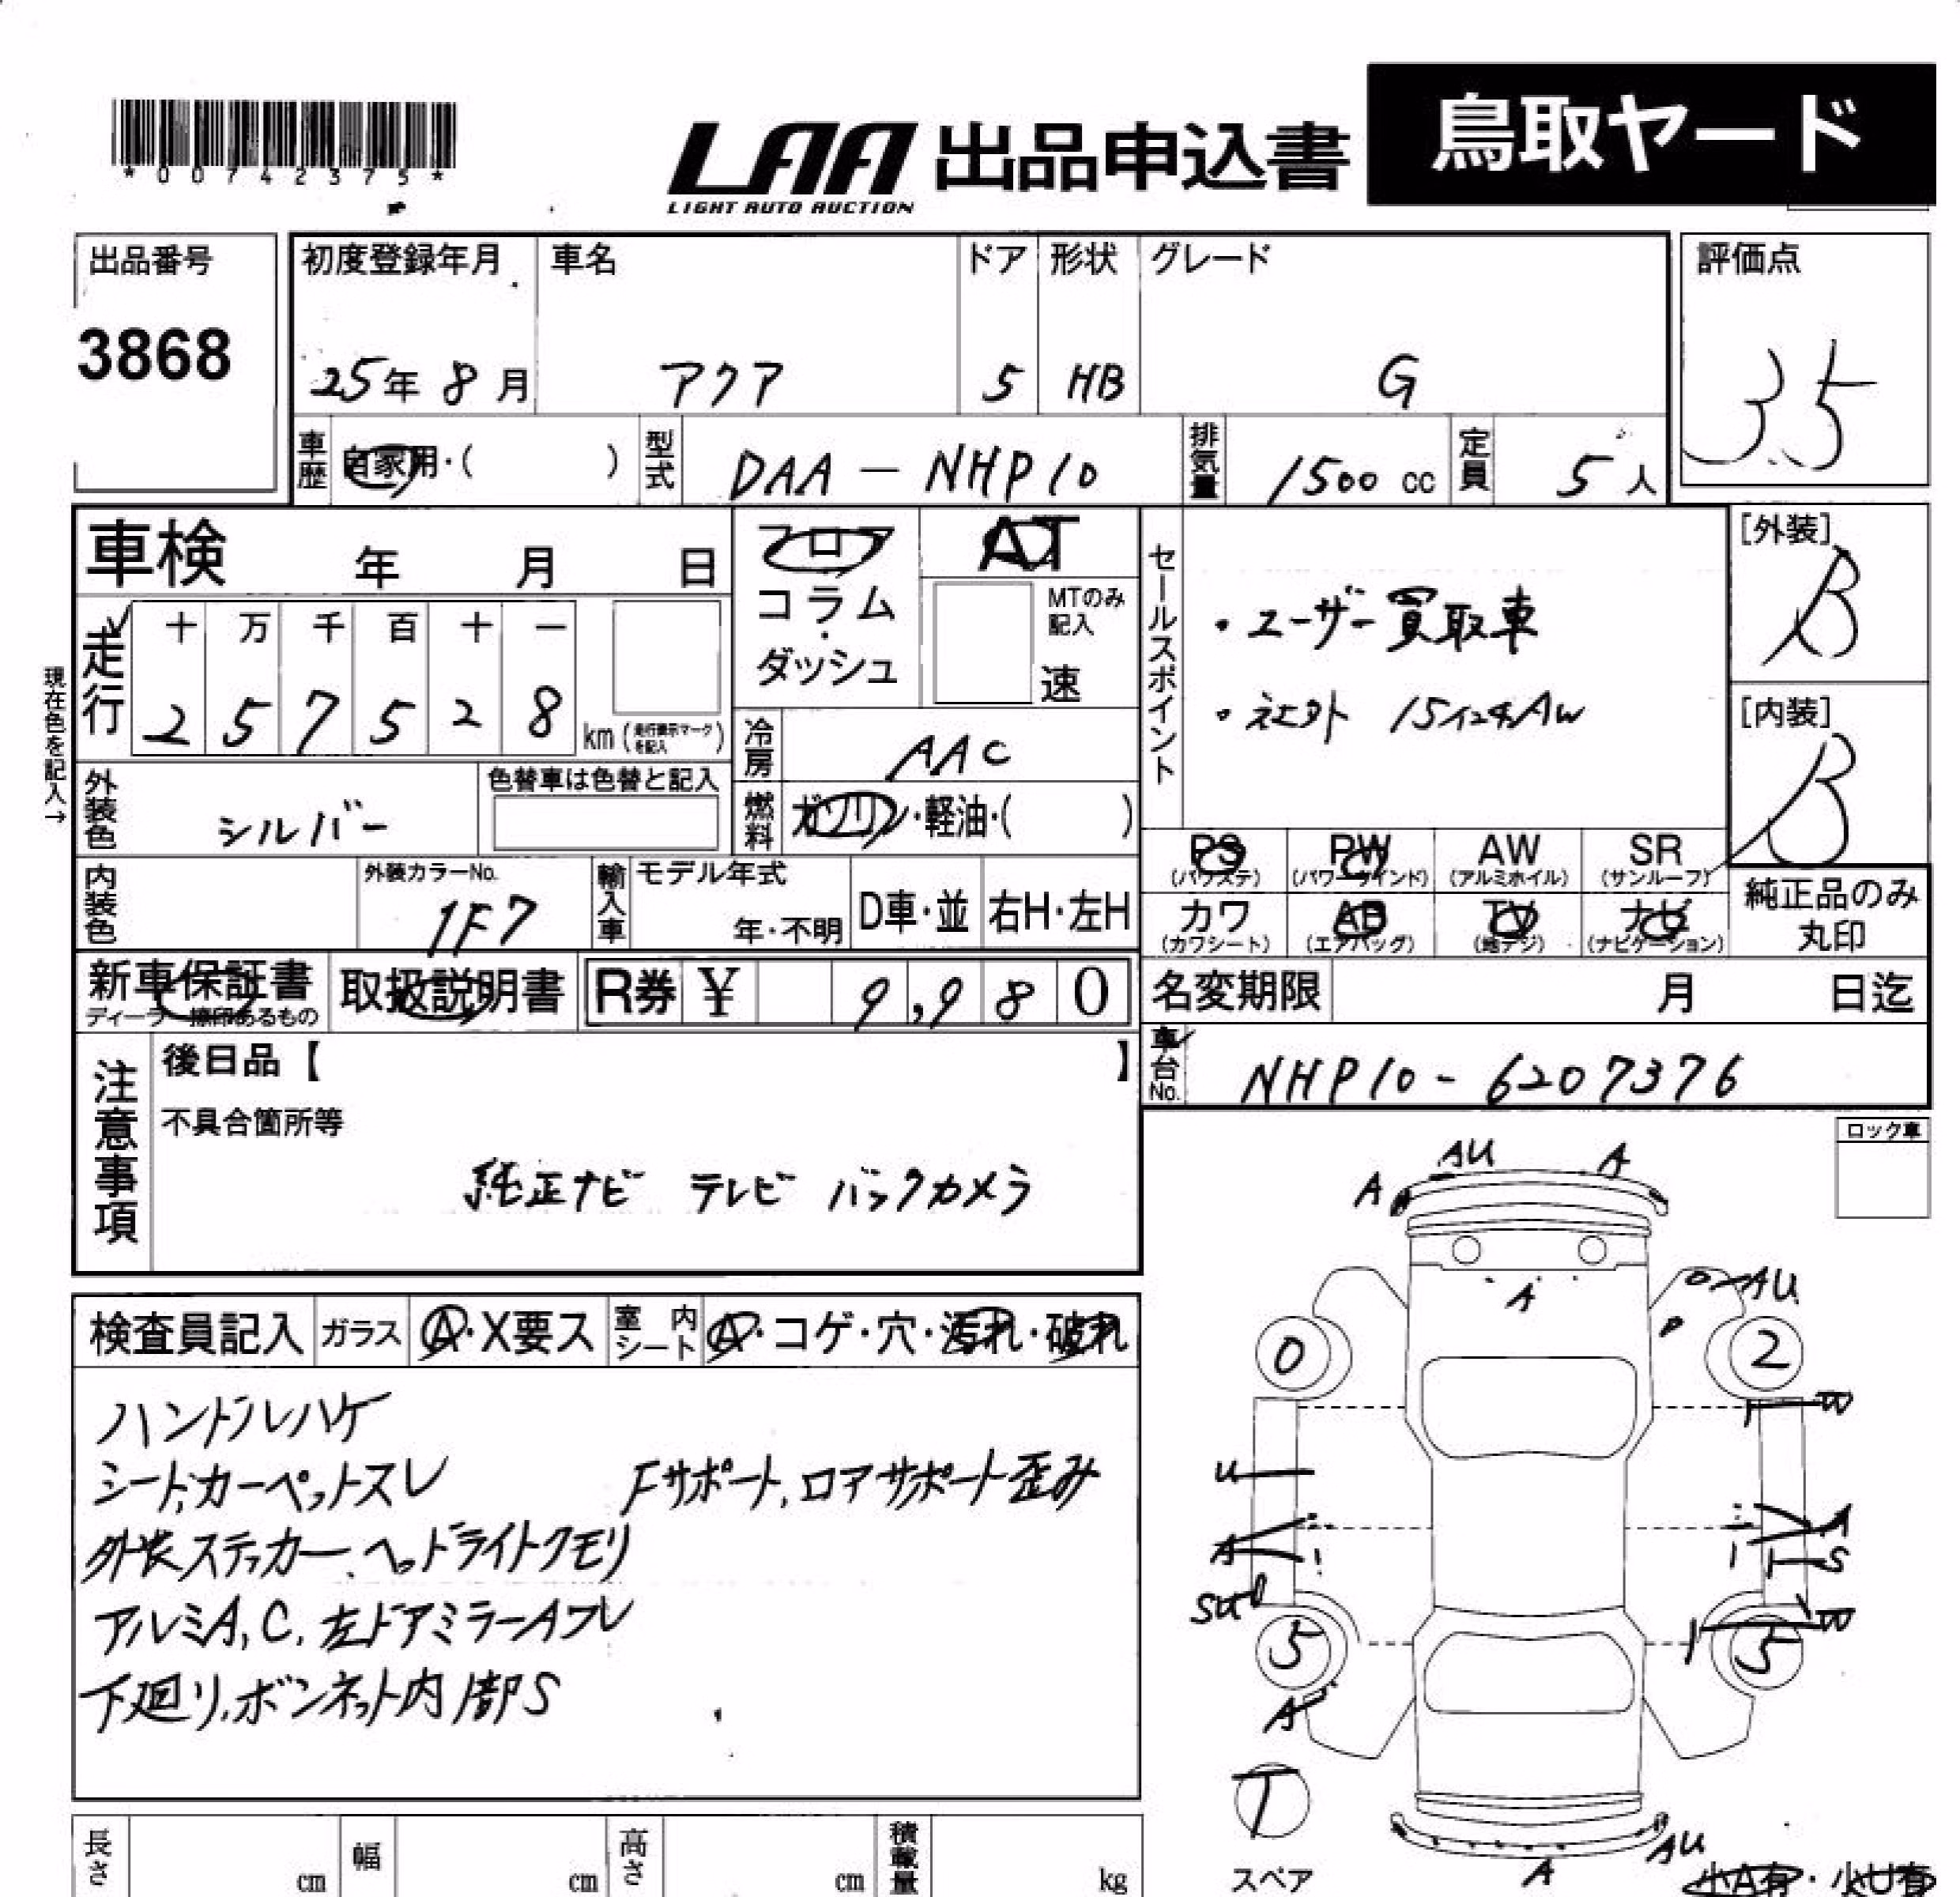 *00742375*
LAA 出品申込書 鳥取ヤード
LIGHT AUTO AUCTION
出品番号 初度登録年月 車名 ドア 形状 グレード 評価点
3868 25年 8月 アクア 5 HB G 3.5
車歴 自家用・( ) 型式 DAA-NHP10 排気量 1500 cc 定員 5人
車検 年 月 日 フロア・コラム・ダッシュ AT
MTのみ記入 速
セールスポイント
・ユーザー買取車
・社外 15インチAW
[外装] B
[内装] B
現在色を記入→
走行 十 万 千 百 十 一
2 5 7 5 2 8 km (走行表示マークを記入)
冷房 AAC
外装色 シルバー 色替車は色替と記入
燃料 ガソリン・軽油・( )
PS (パワステ) PW (パワーウインド) AW (アルミホイル) SR (サンルーフ)
カワ (カワシート) AB (エアバッグ) TV (地デジ) ナビ (ナビゲーション)
純正品のみ丸印
内装色 外装カラーNo. 1F7 輸入車 モデル年式 年・不明 D車・並 右H・左H
新車保証書 取扱説明書 R券 ¥ 9,980
ディーラー捺印あるもの
名変期限 月 日迄
車台No. NHP10-6207376
注意事項
後日品【 】
不具合箇所等
純正ナビ テレビ バックカメラ
ロック車
検査員記入 ガラス A・X要ス 室内シート A・コゲ・穴・汚れ・破れ
ハンドルハゲ
シート,カーペットスレ Fサポート,ロアサポート歪み
外装ステッカー、ヘッドライトクモリ
アルミA,C,左ドアミラーAフレ
下廻り,ボンネット内部S
AU A
A
A
AU
P
0 2
W
U
A A
S
SU W
5 5
A
T
AU
A
スペア
小A有・小U有
長さ cm 幅 cm 高さ cm 積載量 kg